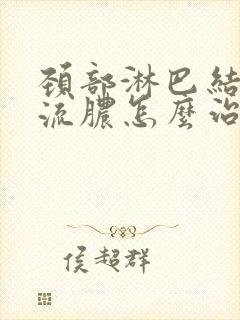 頸部淋巴結
流膿怎麼治
侯超群